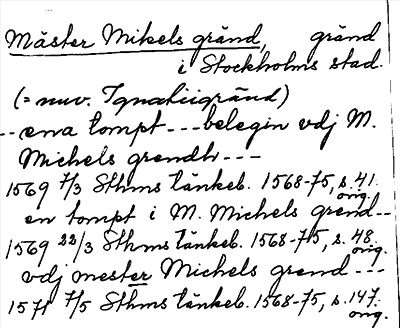 Mäster Mikels gränd, gränd
i Stockholms stad.
(= nuv. Ignatiigränd)
-- ena tompt --- belegin vdj M.
Michels grendh ---
1569 7/3 Sthms tänkeb. 1568-75, s. 41. orig.
en tompt i M. Michels grend --
1569 22/3 Sthms tänkeb. 1568-75, s. 48. orig.
vdj mester Michels grend ---
1571 7/5 Sthms tänkeb. 1568-75, s. 147. orig.